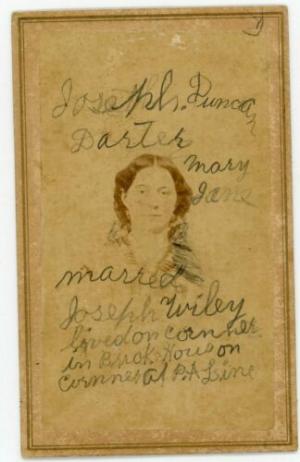 Joseph. Duncan
Darter
Mary
Jane
marred
Joseph Wiley
lived on cornner
in Brick Hous on
Cornner at P.A Line